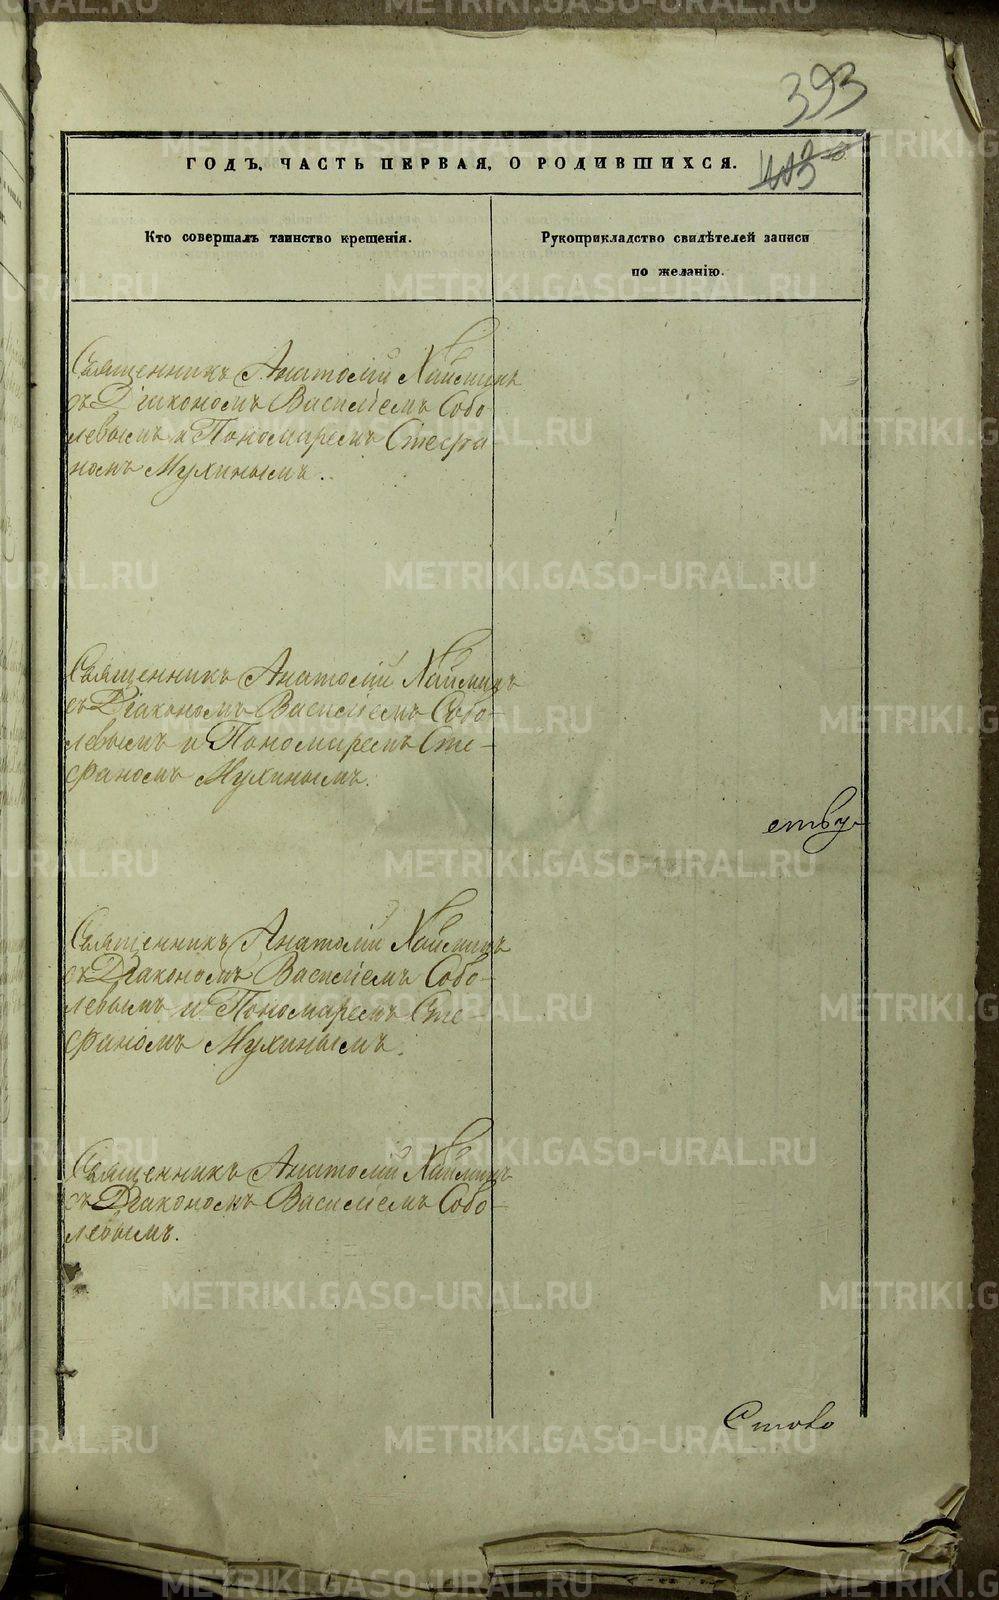 393
ГОДЪ, ЧАСТЬ ПЕРВАЯ, О РОДИВШИХСЯ.
Кто совершалъ таинство крещенія.
Рукоприкладство свидѣтелей записи
по желанію.
Священникъ Анатолій
съ Діакономъ Василіемъ Собо
левымъ и Пономаремъ Стефа
номъ Мухинымъ.
Священникъ Анатолій
съ Діакономъ Василіемъ Собо-
левымъ и Пономаремъ Сте-
фаномъ Мухинымъ.
ству
Священникъ Анатолій
съ Діакономъ Василіемъ Собо-
левымъ и Пономаремъ Сте-
фаномъ Мухинымъ.
Священникъ Анатолій
съ Діакономъ Василіемъ Собо-
левымъ.
METRIKI.GASO-URAL.RU